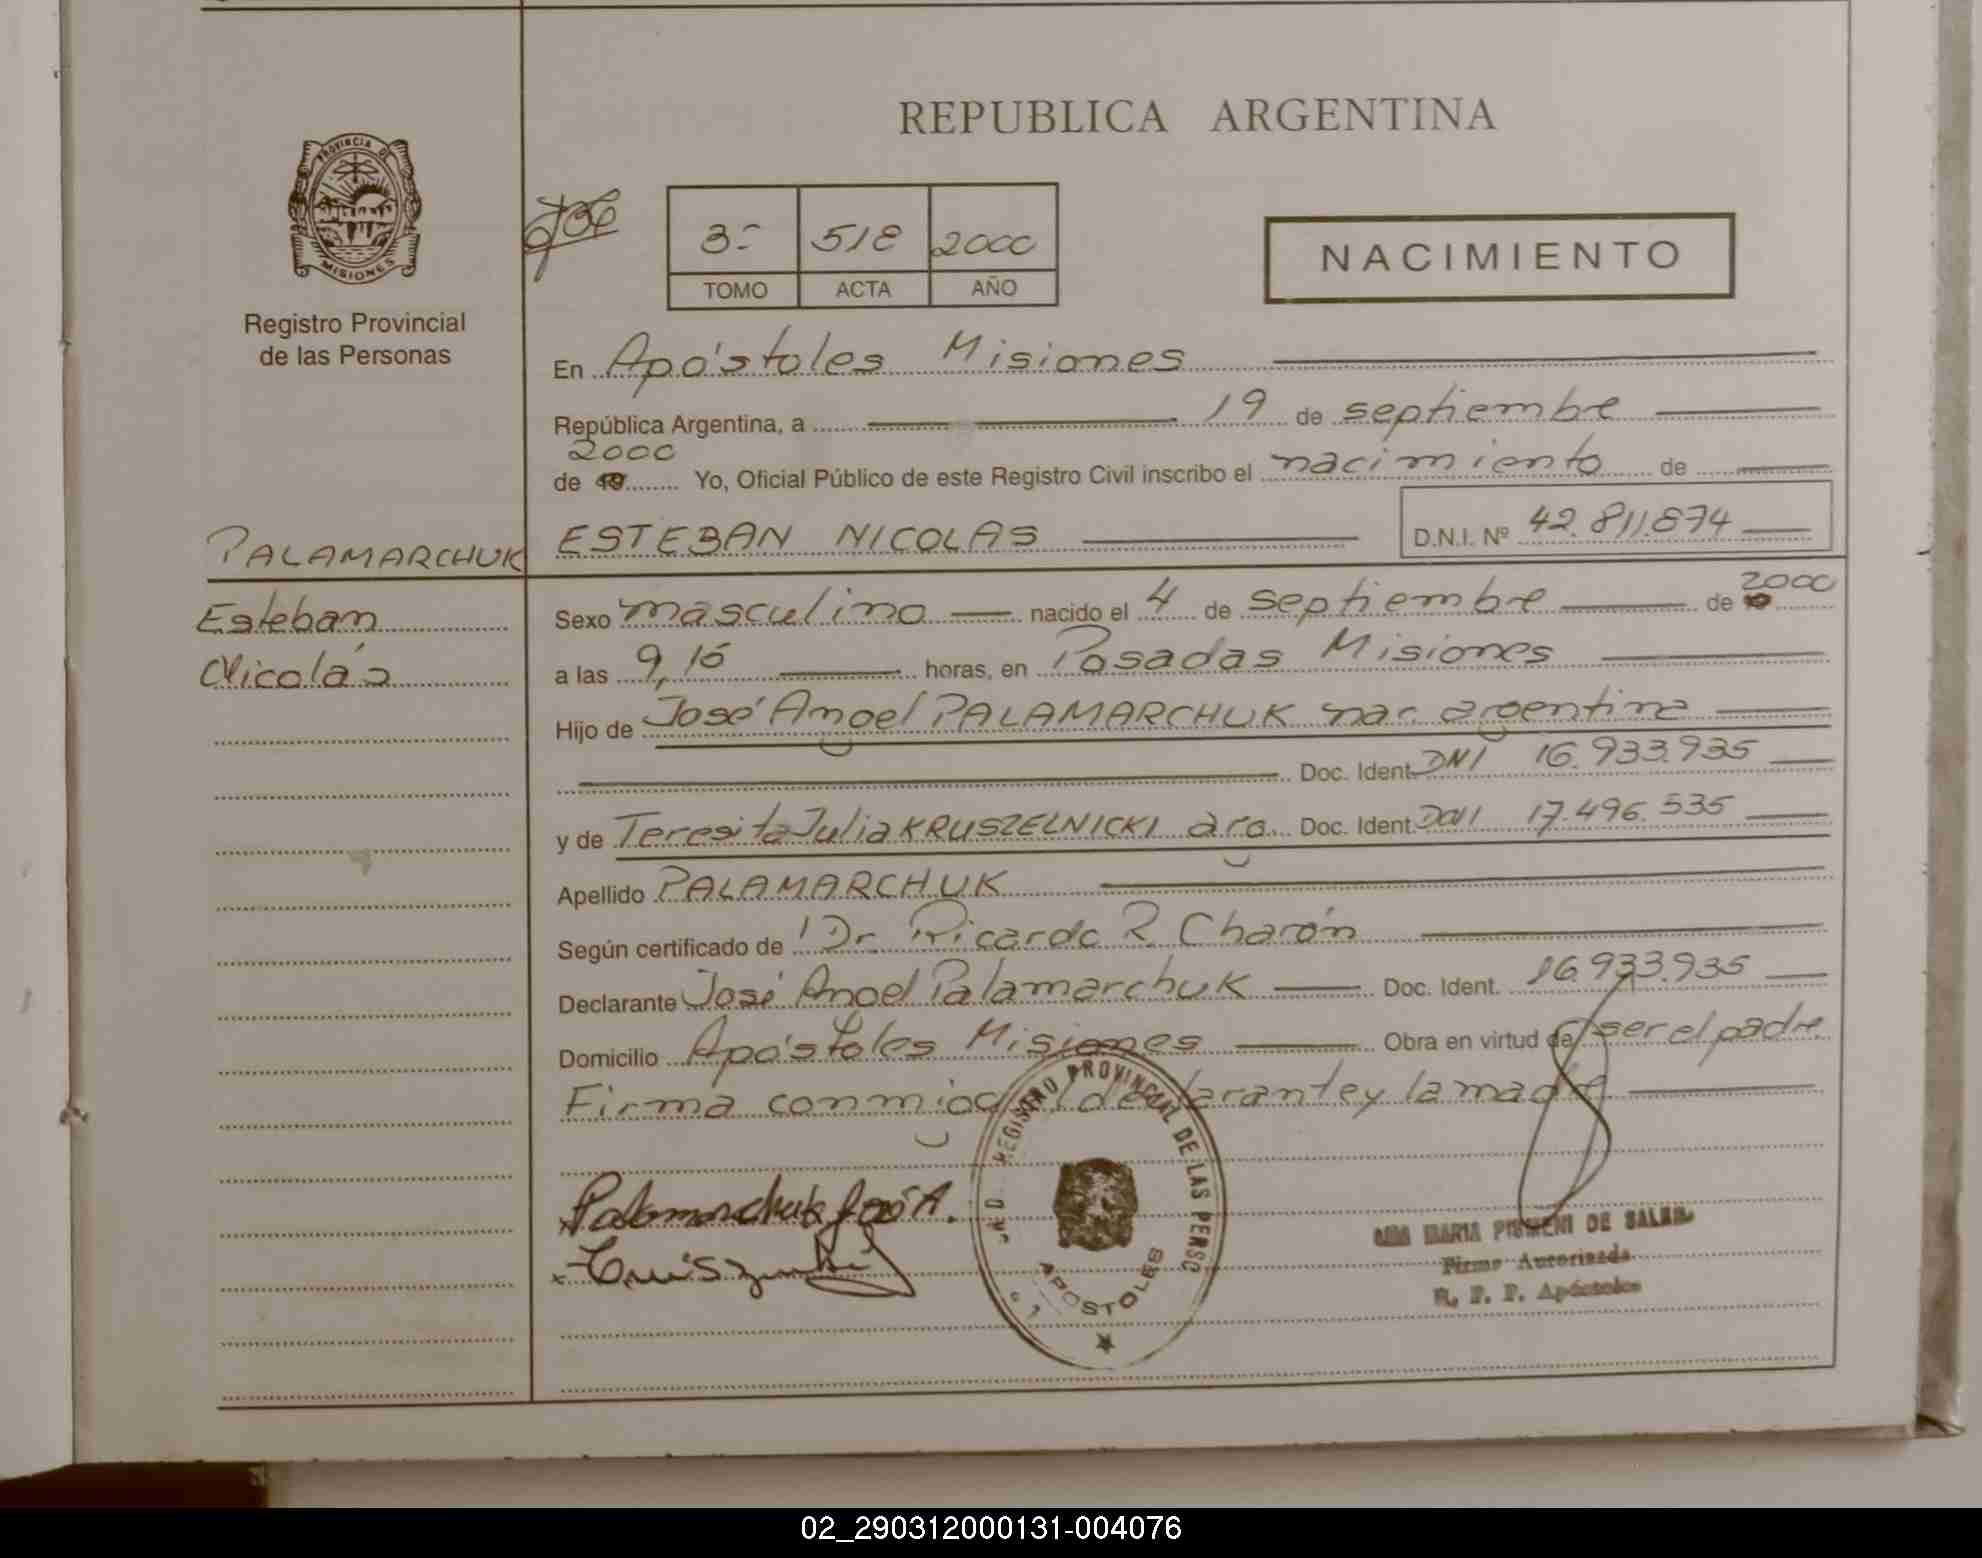 REPUBLICA ARGENTINA
PROVINCIA DE
MISIONES
Registro Provincial
de las Personas
3=
518
2000
TOMO
ACTA
AÑO
NACIMIENTO
En Apóstoles Misiones
República Argentina, a 19 de septiembre
2000
de 19 Yo, Oficial Público de este Registro Civil inscribo el nacimiento de
PALAMARCHUK
ESTEBAN NICOLAS D.N.I. Nº 42.811.874
Esteban
Nicolás
2000
Sexo masculino nacido el 4 de septiembre de
a las 9,15 horas, en Posadas Misiones
Hijo de José Angel PALAMARCHUK nac argentina
Doc. Ident. DNI 16.933.935
y de Teresita Julia KRUSZELNICKI arg. Doc. Ident. DNI 17.496.535
Apellido PALAMARCHUK
Según certificado de Dr Ricardo R. Charón
Declarante José Angel Palamarchuk Doc. Ident. 16.933.935
Domicilio Apóstoles Misiones Obra en virtud de ser el padre
Firma conmigo el declarante y la madre
REGISTRO PROVINCIAL DE LAS PERSO
APOSTOLES
Palamarchuk José A.
MARIA PISMENI DE
Firma Autorizada
R. P. P. Apóstoles
02_290312000131-004076